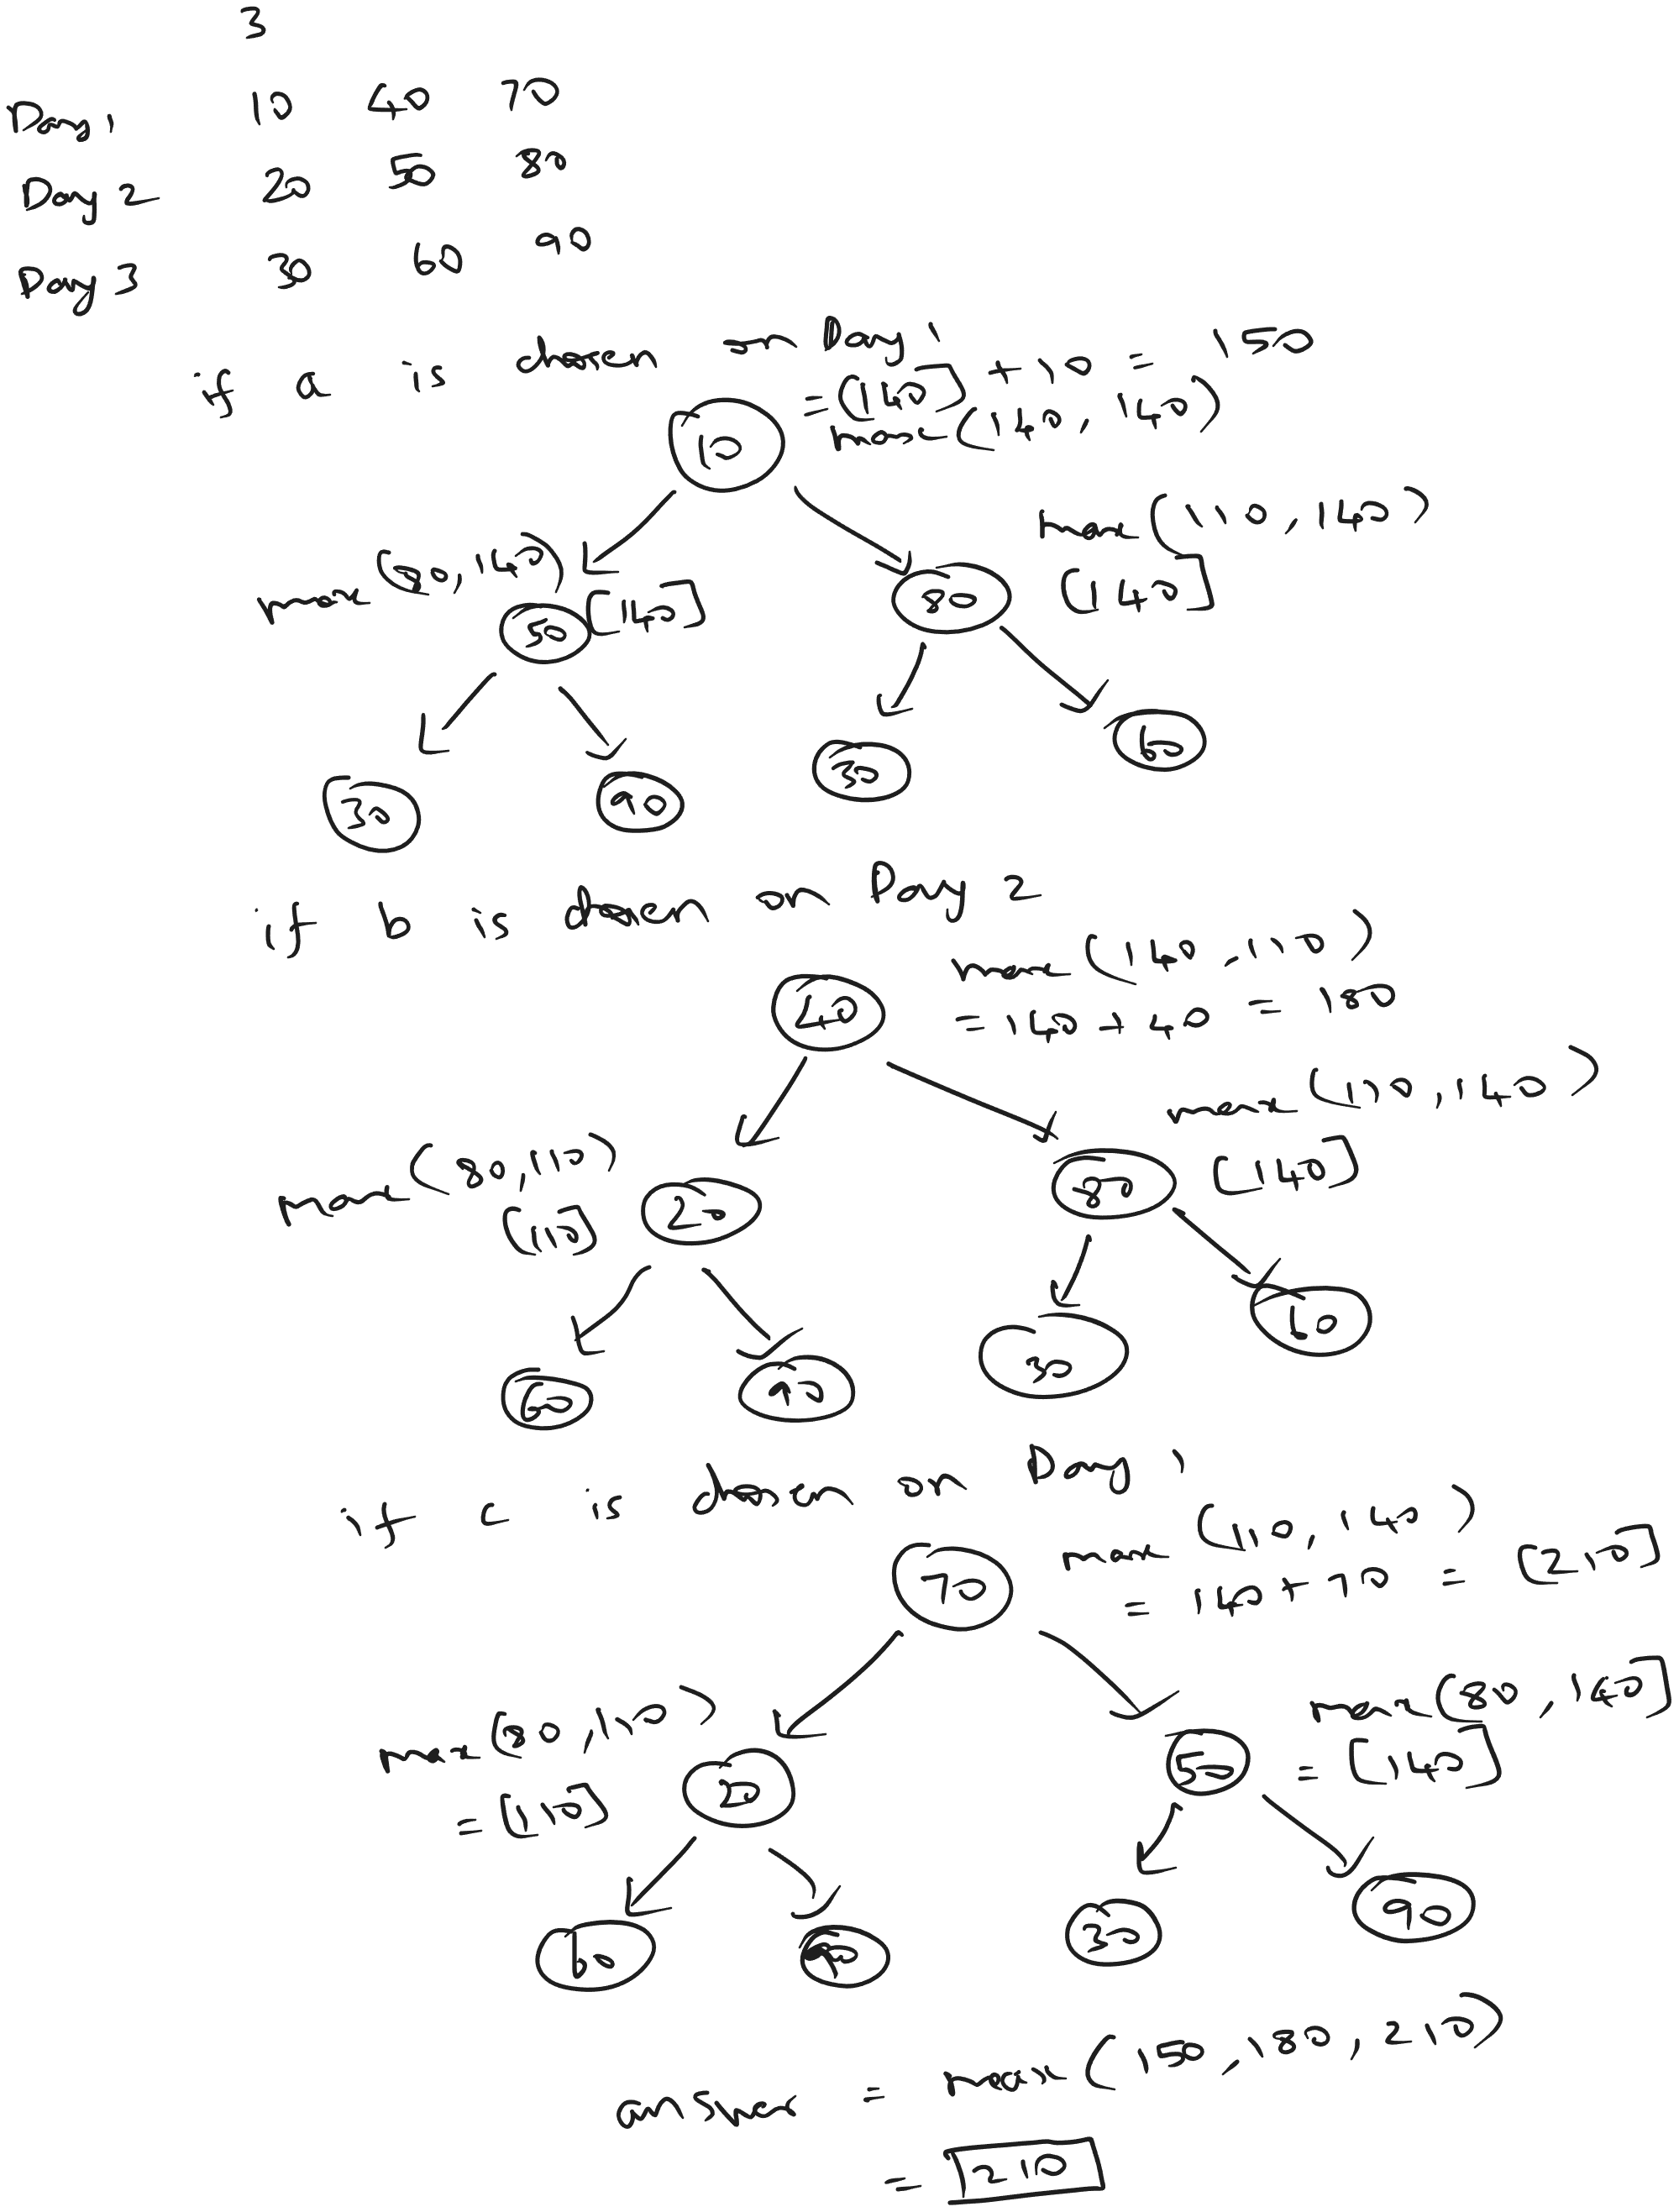 3
Day 1 10 40 70
Day 2 20 50 80
Day 3 30 60 90
if a is chosen on Day 1
= [140] + 10 = 150
max (140, 140)
10
max (80, 140)
max (110, 140)
50 [140]
80 [140]
30 90 30 60
if b is chosen on Day 2
40
max (140, 110)
= 140 + 40 = 180
max (80, 110)
[110]
20
max (110, 140)
80 [140]
60 90 30 60
if c is chosen on Day 1
70
max (110, 140)
= 140 + 70 = [210]
max (80, 110)
= [110]
20
max (80, 140]
50 = [140]
60 90 30 90
answer = max (150, 180, 210)
= 210